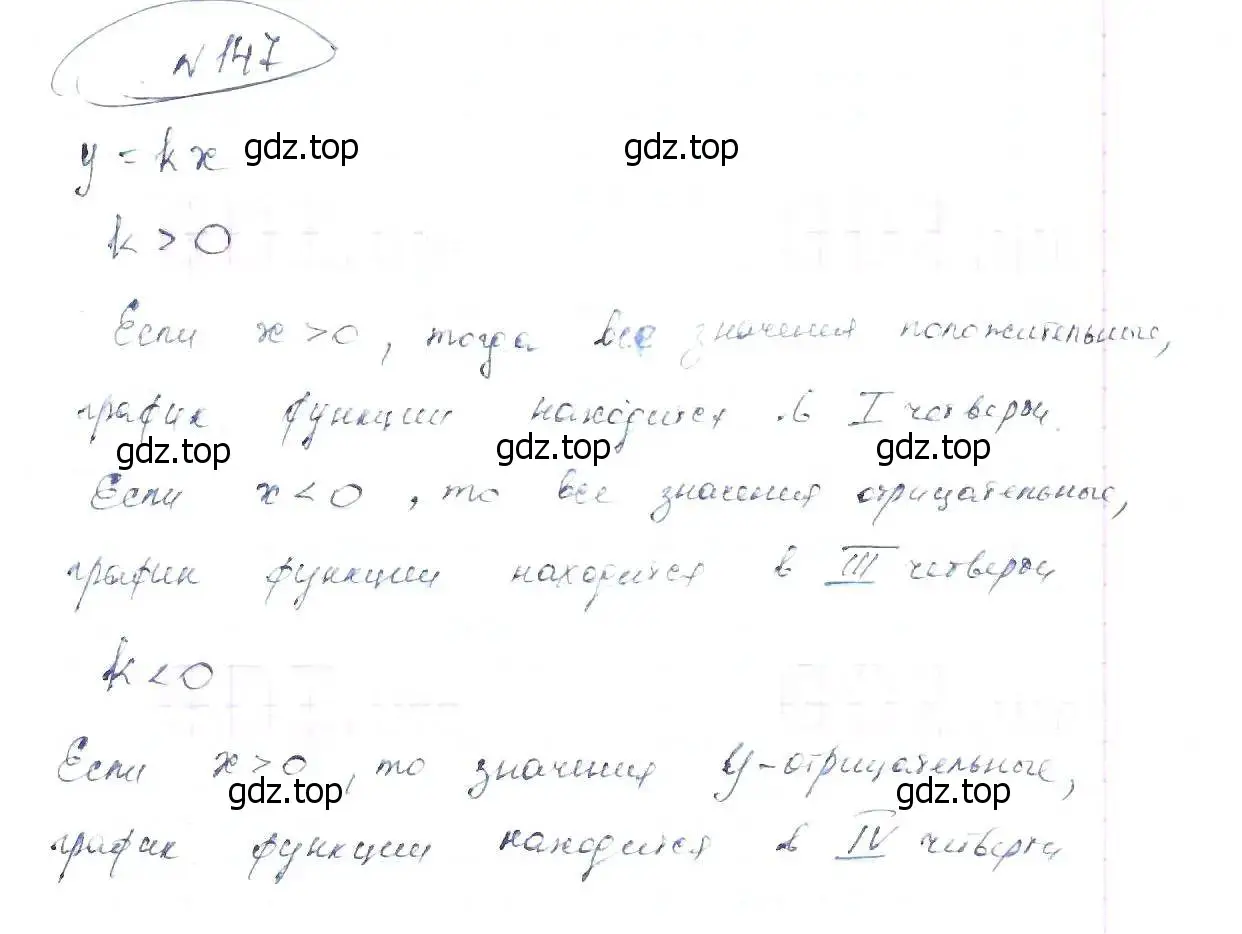 № 147
y = kx gdz.top gdz.top
k > 0
Если x > 0, тогда все значения положительные,
график функции находится в I четверти.
gdz.top gdz.top gdz.top
Если x < 0, то все значения отрицательные,
график функции находится в III четверти
k < 0
Если x > 0, то значения y - отрицательные,
gdz.top gdz.top gdz.top
график функции находится в IV четверти